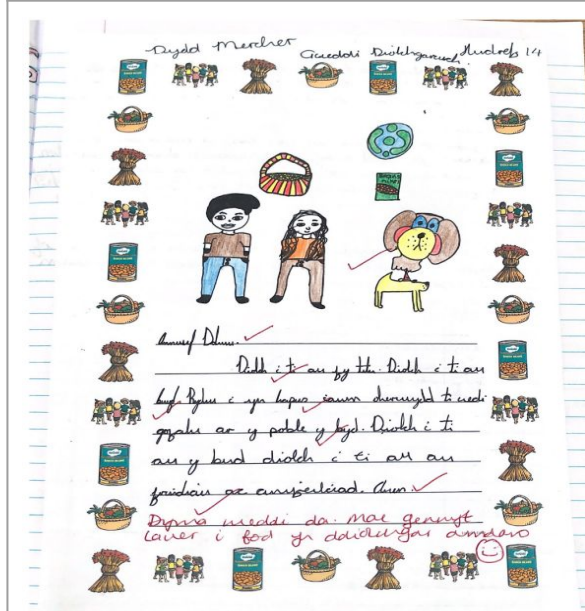 Dydd Mercher Gweddi Diolchgarwch Hydref 14
Annwyl Dduw.
Diolch i ti am fy Diolch i ti am
bwyd. Rydw i yn hapus iawn oherwydd ti wedi
gofalu ar y pobl y byd. Diolch i ti
am y byd diolch i ti am
ffrindiau ac anifeiliaid. Amen.
Dyma weddi da. Mae gennyt
lawer i fod yn ddiolchgar amdano